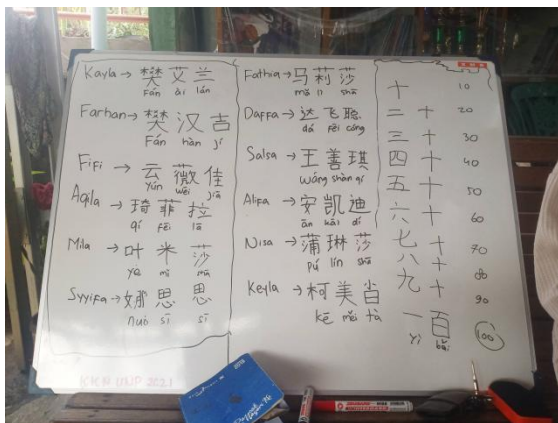 Kayla → 樊艾兰
Fán ài lán
Farhan → 樊汉吉
Fán hàn jí
Fifi → 云薇佳
Yún wēi jiā
Aqila → 琦菲拉
qí fēi lā
Mila → 叶米莎
ye mǐ
Syyifa → 娜思思
nuó sī sī
KKN UNP 2021
Fathia → 马莉莎
mǎ lì shā
Daffa → 达飞聪
dá fēi cōng
Salsa → 王善琪
wáng shàn qí
Alifa → 安凯迪
ān kǎi dí
Nisa → 蒲琳莎
pú lín shā
Keyla → 柯美
kē měi tà
十 10
二十 20
三十 30
四十 40
五十 50
六十 60
七十 70
八十 80
九十 90
一百 100
yì bǎi